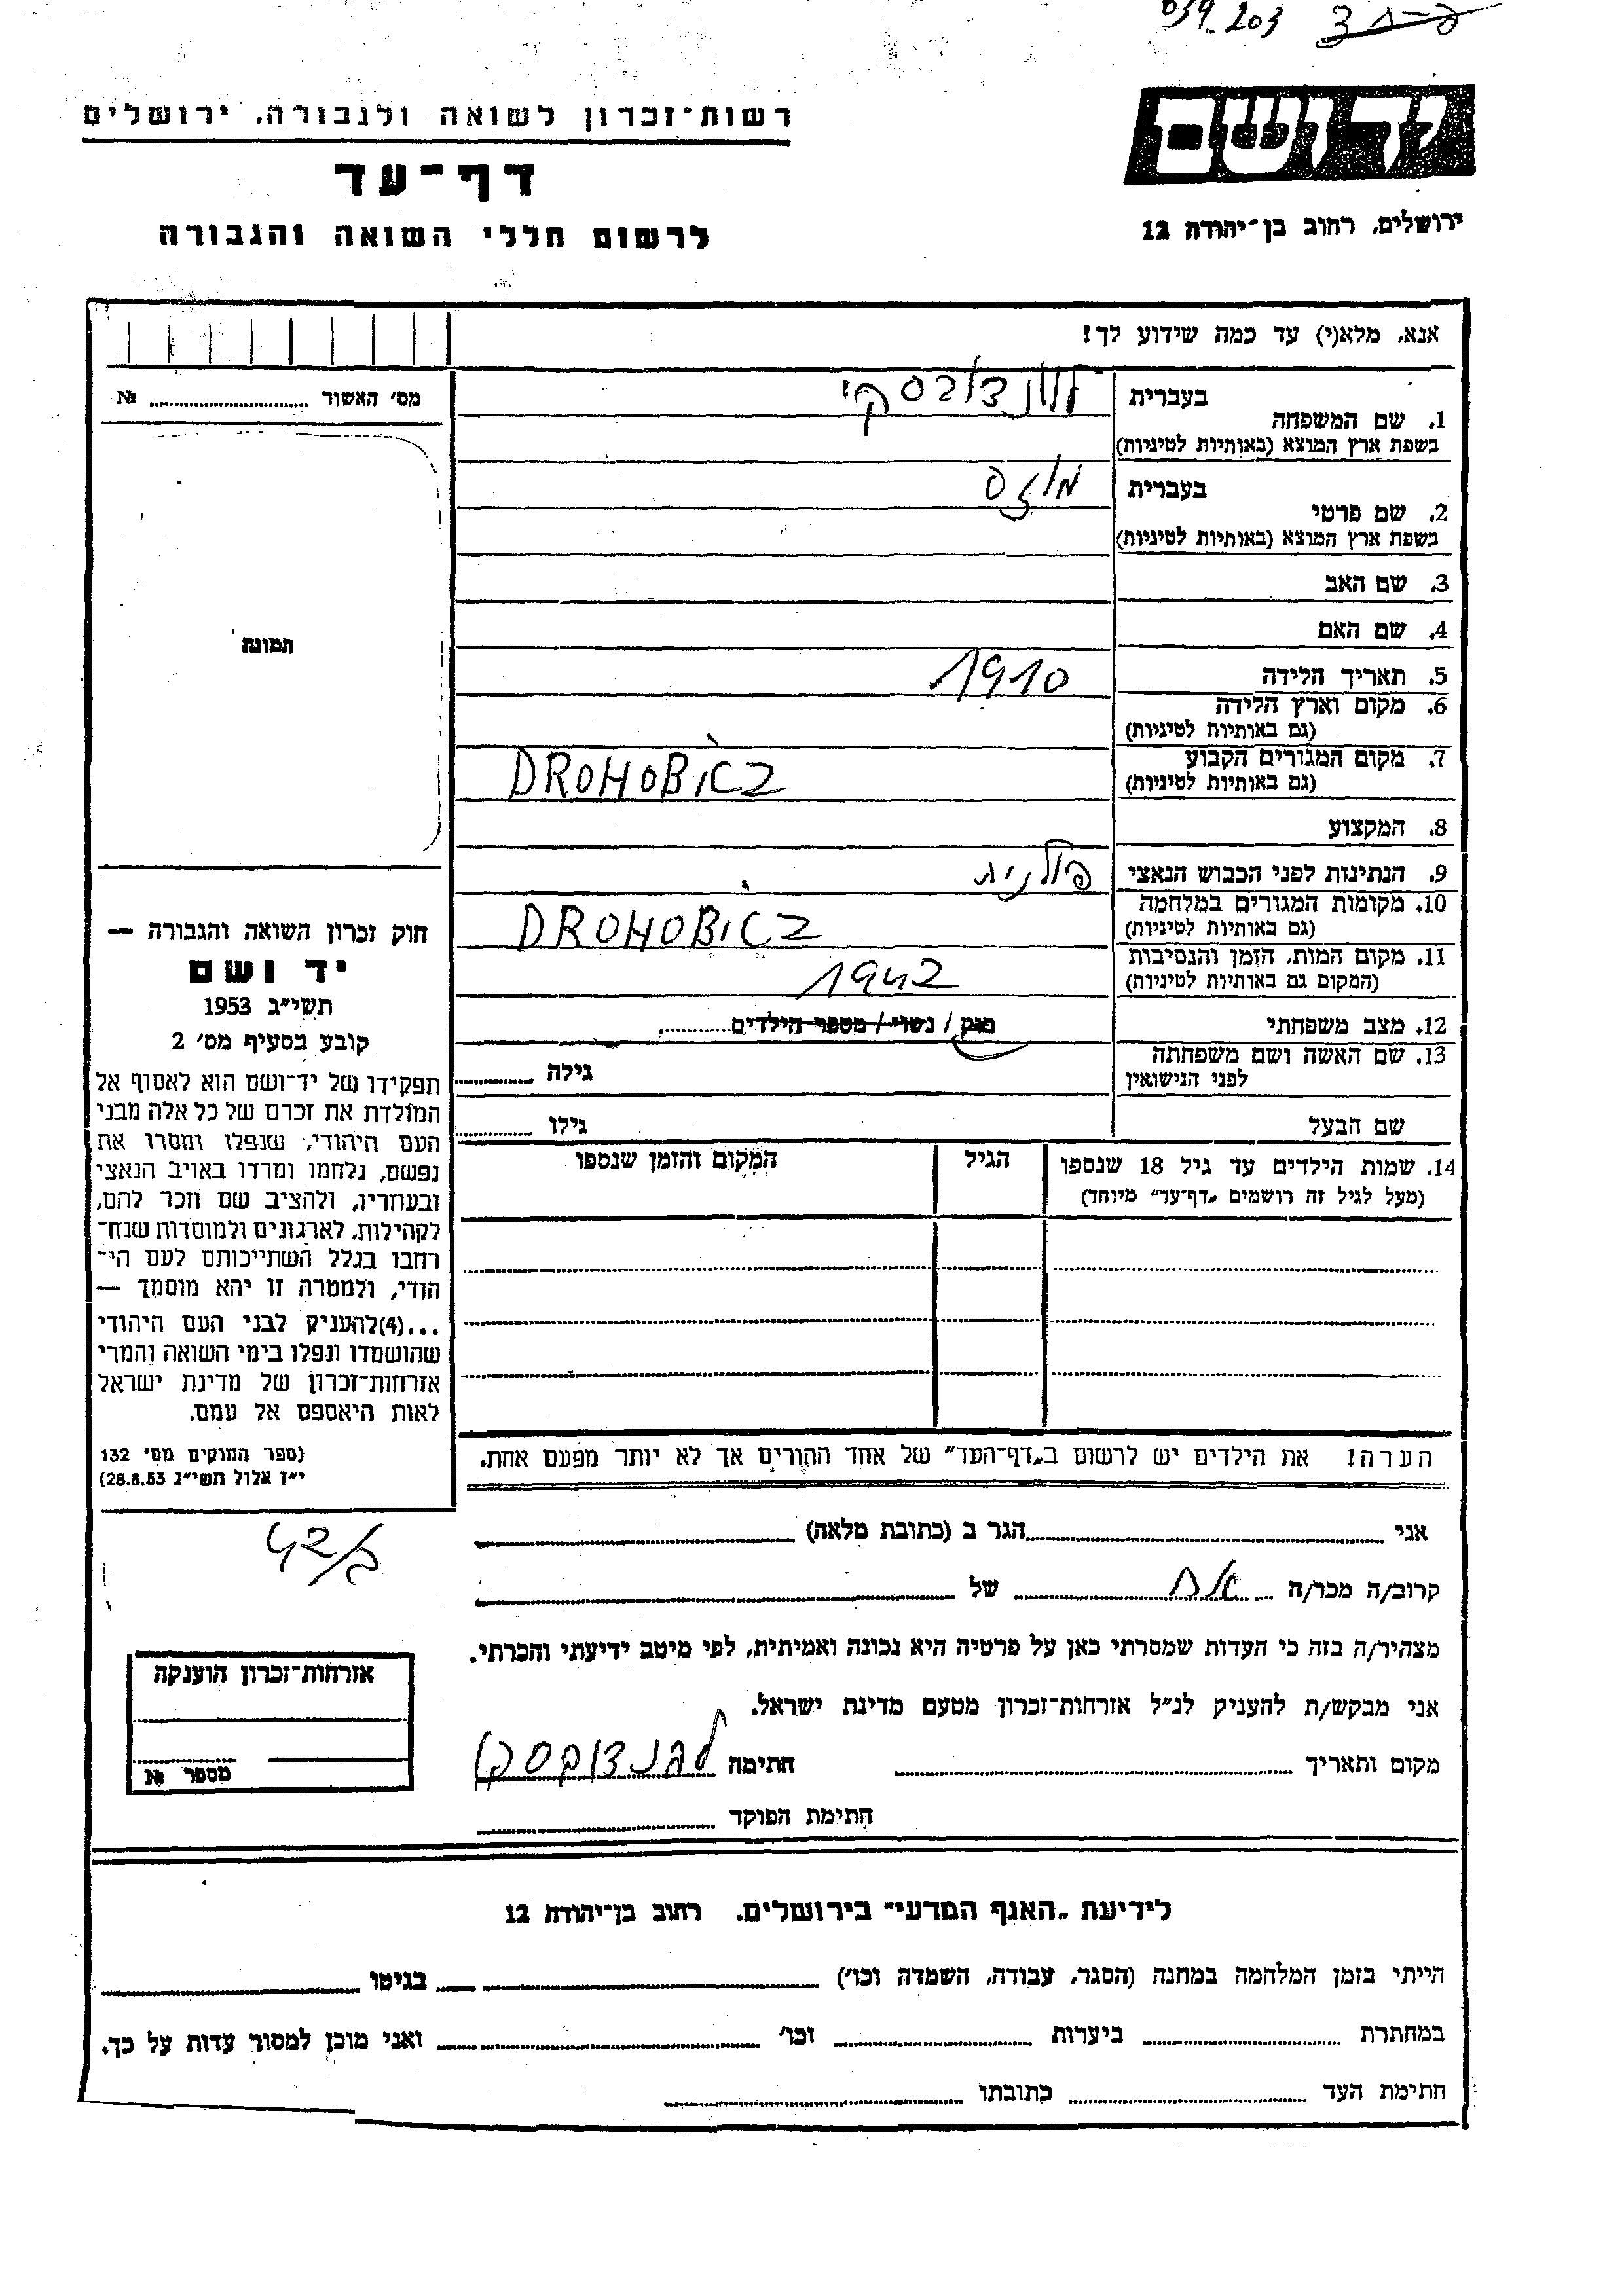 039.203
ידושם
רשות־זכרון לשואה ולגבורה, ירושלים
דף־עד
לרשום חללי השואה והגבורה
ירושלים, רחוב בן־יהודה 12
אנא, מלא(י) עד כמה שידוע לך!
מס׳ האשור №
בעברית
1. שם המשפחה
בשפת ארץ המוצא (באותיות לטיניות)
בעברית מוזס
2. שם פרטי
בשפת ארץ המוצא (באותיות לטיניות)
3. שם האב
4. שם האם
5. תאריך הלידה 1910
6. מקום וארץ הלידה
(גם באותיות לטיניות)
7. מקום המגורים הקבוע DROHOBICZ
(גם באותיות לטיניות)
8. המקצוע
9. הנתינות לפני הכבוש הנאצי פולנית
10. מקומות המגורים במלחמה DROHOBICZ
(גם באותיות לטיניות)
11. מקום המות, הזמן והנסיבות 1942
(המקום גם באותיות לטיניות)
12. מצב משפחתי רווק / נשוי / מספר הילדים
13. שם האשה ושם משפחתה
לפני הנישואין גילה
שם הבעל גילו
14. שמות הילדים עד גיל 18 שנספו הגיל המקום והזמן שנספו
(מעל לגיל זה רושמים „דף־עד” מיוחד)
הערה: את הילדים יש לרשום ב„דף־העד” של אחד ההורים אך לא יותר מפעם אחת.
תמונה
חוק זכרון השואה והגבורה —
יד ושם
תשי״ג 1953
קובע בסעיף מס׳ 2
תפקידו של יד־ושם הוא לאסוף אל
המולדת את זכרם של כל אלה מבני
העם היהודי, שנפלו ומסרו את
נפשם, נלחמו ומרדו באויב הנאצי
ובעוזריו, ולהציב שם וזכר להם,
לקהילות, לארגונים ולמוסדות שנח־
רבו בגלל השתייכותם לעם הי־
הודי, ולמטרה זו יהא מוסמך —
...(4)להעניק לבני העם היהודי
שהושמדו ונפלו בימי השואה והמרי
אזרחות־זכרון של מדינת ישראל
לאות היאספם אל עמם.
(ספר החוקים מס׳ 132
י״ז אלול תשי״ג 28.8.53)
אני הגר ב (כתובת מלאה)
קרוב/ה מכר/ה אח של
מצהיר/ה בזה כי העדות שמסרתי כאן על פרטיה היא נכונה ואמיתית, לפי מיטב ידיעתי והכרתי.
אני מבקש/ת להעניק לנ״ל אזרחות־זכרון מטעם מדינת ישראל.
מקום ותאריך חתימה
חתימת הפוקד
אזרחות־זכרון הוענקה
מספר №
לידיעת „האגף המדעי” בירושלים. רחוב בן־יהודה 12
הייתי בזמן המלחמה במחנה (הסגר, עבודה, השמדה וכו׳) בגיטו
במחתרת ביערות וכו׳ ואני מוכן למסור עדות על כך.
חתימת העד כתובתו